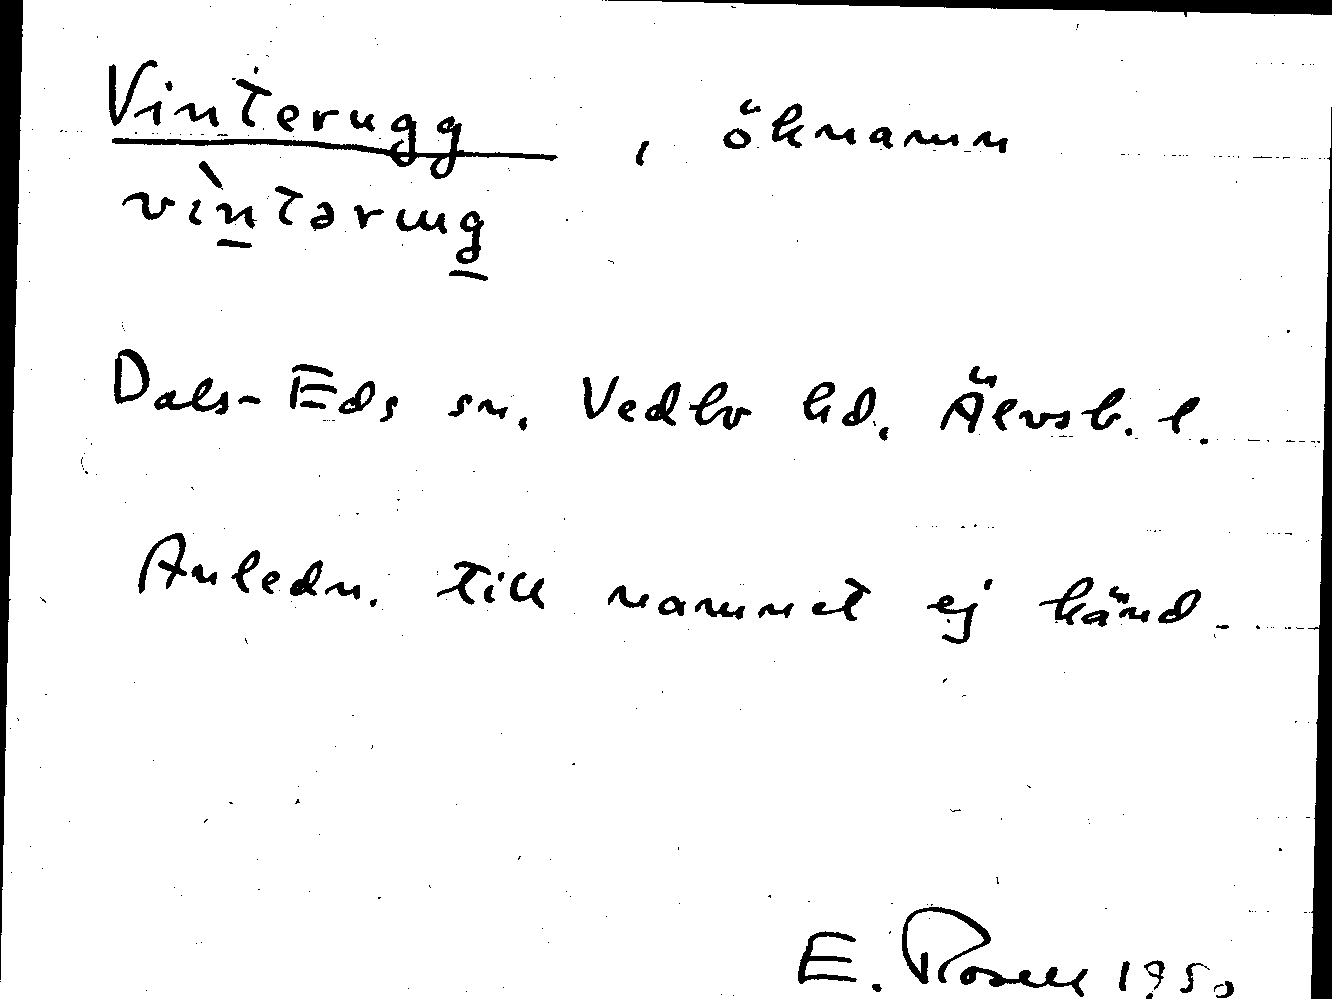 Vinterugg, öknamn
vìn̲tərɯg̲
Dals-Eds sn. Vedbo hd. Älvsb. l.
Anledn. till namnet ej känd.
E. Rosell 1950